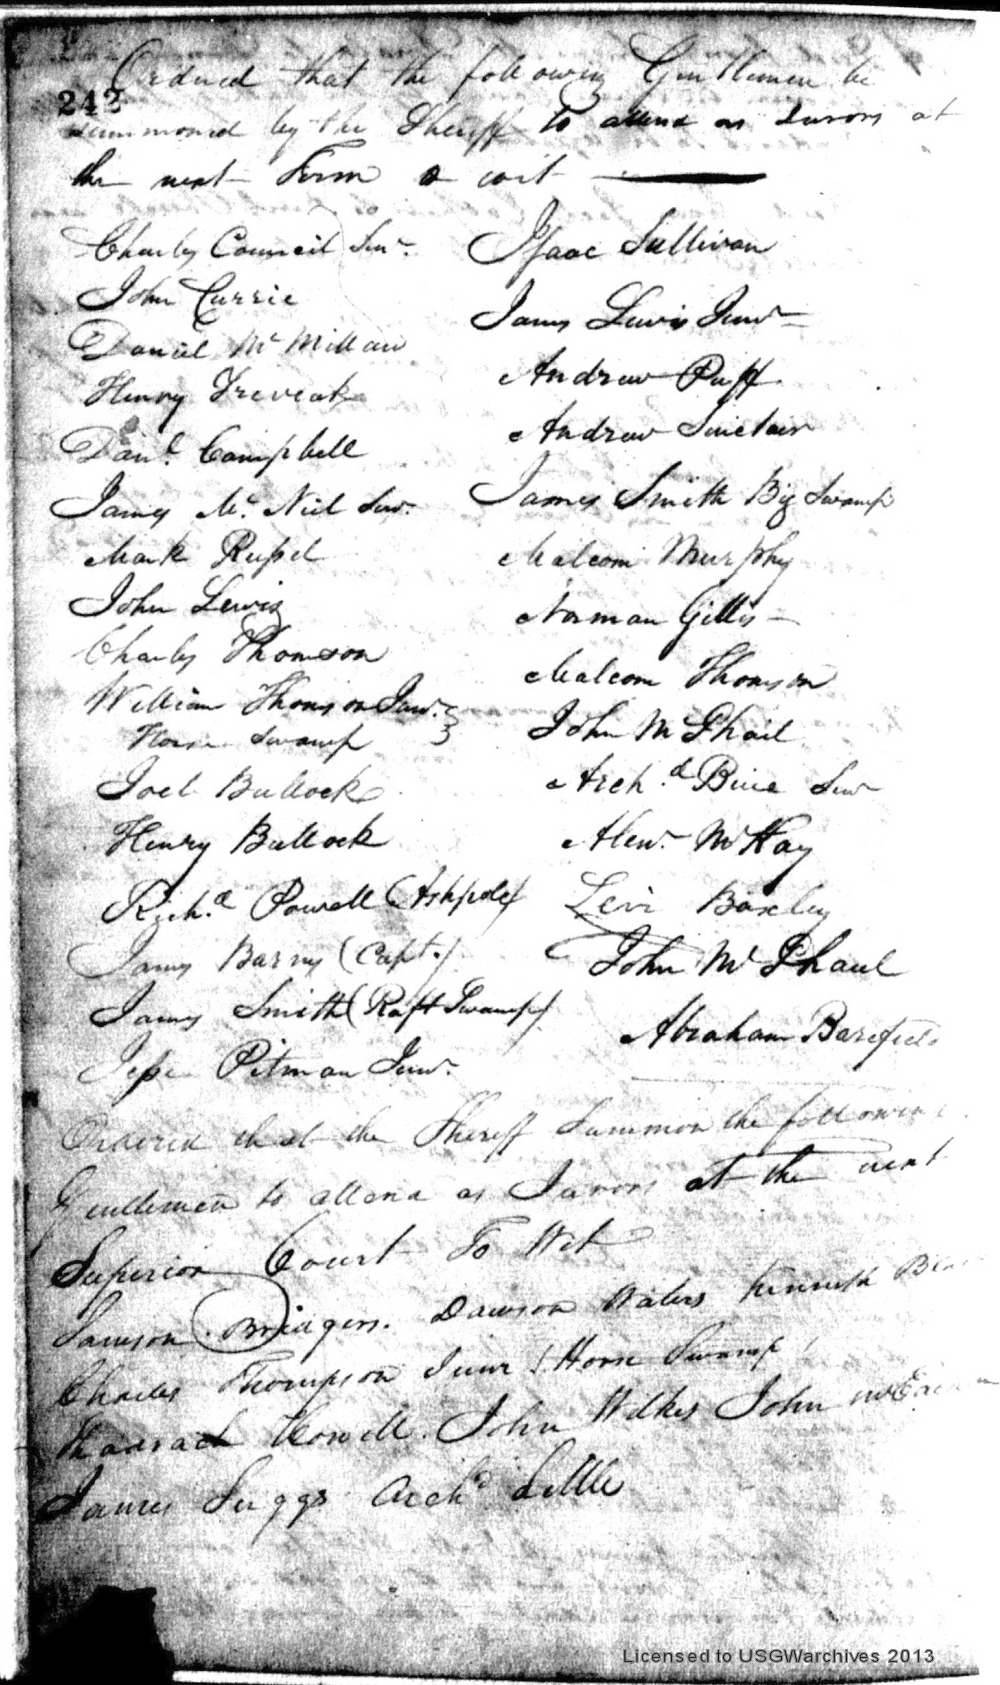 Ordered that the following Gentlemen be
242
summoned by the Sheriff to attend as Jurors at
the next Term to wit
Charles Council Senr.
John Currie
Daniel Mc Millan
Henry
Danl. Campbell
James Mc Neil Senr.
Mark Russel
John Lewis
Charles Thomson
William Thomson Junr.
Horse Swamp
Joel Bullock
Henry Bullock
Richd. Powell (Ashpole)
James Barns (Capt.)
James Smith (Raft Swamp)
Jesse Pitman Junr.
Isaac Sullivan
James Lewis Junr
Andrew Puff
Andrew Sinclair
James Smith Big Swamp
Malcom Murphy
Norman Gillis
Malcom Thomson
John McPhail
Archd. Buie Senr
Alexr. McKay
Levi Baxley
John McPhaul
Abraham Barefield
Ordered that the Sheriff Summon the following
Gentlemen to attend as Jurors at the next
Superior Court To Wit
Samson Bridgers. Dawson Waters Kenneth
Charles Thompson Junr (Horse Swamp)
Howell. John Wilkes John
James Suggs Archd Little
Licensed to USGWarchives 2013